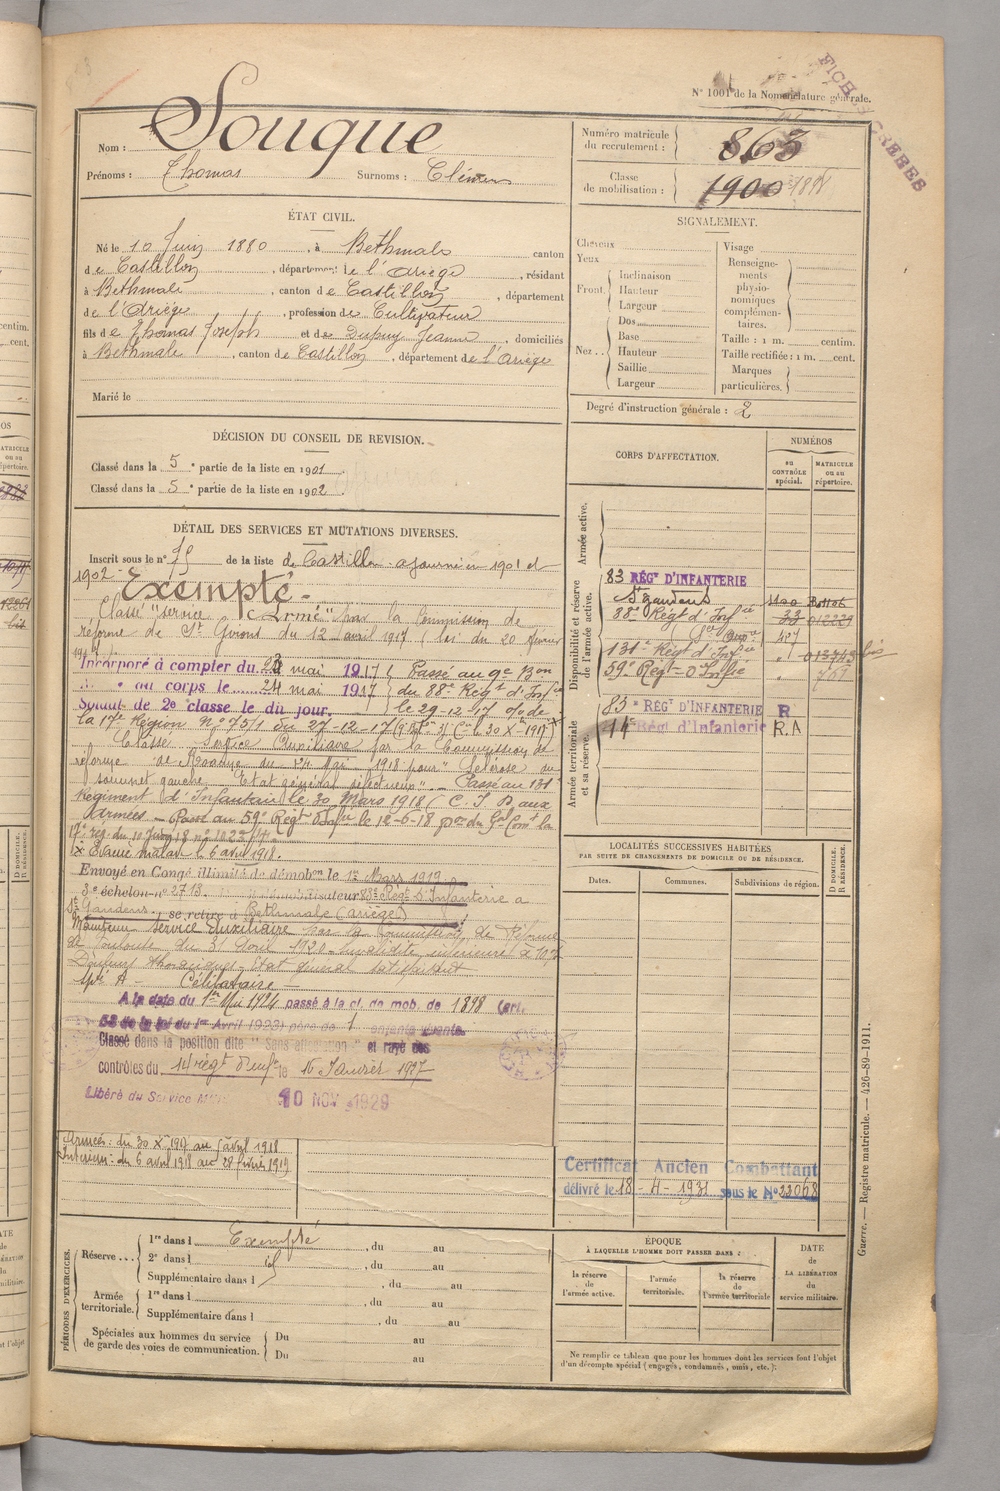 FICHES CRÉÉES
N° 1001 de la Nomenclature générale.
Nom : Souque
Prénoms : Thomas Surnoms : Clémens
Numéro matricule du recrutement : 863
Classe de mobilisation : 1900 1898
ÉTAT CIVIL.
Né le 10 Juin 1880, à Bethmale canton
de Castillon, département de l'Ariège, résidant
à Bethmale, canton de Castillon, département
de l'Ariège, profession de Cultivateur
fils de Thomas Joseph et de Dupuy Jeanne, domiciliés
à Bethmale, canton de Castillon, département de l'Ariège
Marié le
SIGNALEMENT.
Cheveux
Yeux
Front. Inclinaison
Hauteur
Largeur
Nez... Dos
Base
Hauteur
Saillie
Largeur
Visage
Renseignements physionomiques complémentaires.
Taille : 1 m. centim.
Taille rectifiée : 1 m. cent.
Marques particulières.
Degré d'instruction générale : 2
DÉCISION DU CONSEIL DE REVISION.
Classé dans la 5e partie de la liste en 1901.
Classé dans la 5e partie de la liste en 1902.
DÉTAIL DES SERVICES ET MUTATIONS DIVERSES.
Inscrit sous le n° 75 de la liste de Castillon ajourné en 1901 et
1902 - Exempté.
Classé "service Armé" par la Commission de
réforme de St Girons du 12 avril 1917 (loi du 20 février
Incorporé à compter du 24 mai 1917 Passé au 9e Bon
au corps le 24 mai 1917 du 88e Régt d'Infie
Soldat de 2e classe le dit jour. le 29-12-17 o/o de
la 17e Région N° 7571 du 27-12-17
Classé Service Auxiliaire par la Commission de
réforme de Roanne du 24 Mai 1918 pour "Sclérose du
sommet gauche Etat général défectueux" - Passé au 131e
Régiment d'Infanterie le 30 Mars 1918 (C. I. D aux
Armées - Passé au 59e Régt d'Infie le 12-6-18
Evacué malade le 6 avril 1918.
Envoyé en Congé illimité de démobon le 1er Mars 1919
3e échelon n° 2713 démobilisateur 83e Régt d'Infanterie à
St Gaudens, se retire à Bethmale (Ariège)
Maintenu service Auxiliaire par la Commission de Réforme
de Toulouse du 31 Avril 1920 invalidité inférieure à 10%
Etat général satisfaisant
Célibataire
A la date du 1er Mai 1924 passé à la cl. de mob. de 1898 (art.
58 de la loi du 1er Avril 1923) père de 1 enfants vivants.
Classé dans la position dite "Sans affectation" et rayé des
contrôles du 14e régt d'Infie le 16 Janvier 1927
Libéré du Service Mre 10 NOV 1929
Armées : du 30 Xbre 1917 au 5 avril 1918
Intérieur : du 6 avril 1918 au 28 février 1919
CORPS D'AFFECTATION.
NUMÉROS
au CONTRÔLE spécial.
MATRICULE ou au répertoire.
Armée active.
Disponibilité et réserve de l'armée active.
83 RÉGT D'INFANTERIE
St Gaudens
88e Régt d'Infie 33 012229
131e Régt d'Infie " 013743 bis
59e Régt d'Infie "
Armée territoriale et sa réserve.
83e RÉGT D'INFANTERIE R
14e Régt d'Infanterie R.A
LOCALITÉS SUCCESSIVES HABITÉES
PAR SUITE DE CHANGEMENTS DE DOMICILE OU DE RÉSIDENCE.
Dates. Communes. Subdivisions de région.
D DOMICILE. R RÉSIDENCE.
Certificat Ancien Combattant
délivré le 18 - 4 - 1931 sous le N° 22068
PÉRIODES D'EXERCICES.
Réserve... 1re dans l Exempté, du au
2e dans l, du au
Supplémentaire dans l, du au
Armée territoriale. 1re dans l, du au
Supplémentaire dans l, du au
Spéciales aux hommes du service de garde des voies de communication. Du au
Du au
ÉPOQUE
À LAQUELLE L'HOMME DOIT PASSER DANS :
la réserve de l'armée active.
l'armée territoriale.
la réserve de l'armée territoriale
DATE de LA LIBÉRATION du service militaire.
Ne remplir ce tableau que pour les hommes dont les services font l'objet
d'un décompte spécial (engagés, condamnés, omis, etc.).
Guerre. — Registre matricule. — 426-89-1911.